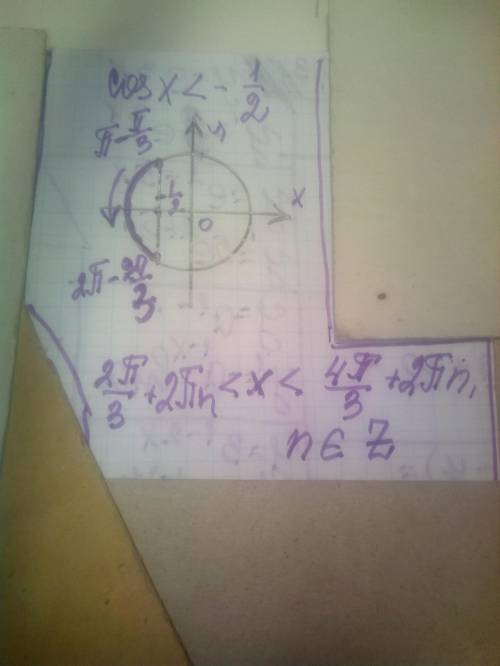 cos x < - 1/2
π - π/3
y
- 1/2
x
0
2π - 2π/3
2π/3 + 2πn < x < 4π/3 + 2πn,
n ∈ Z